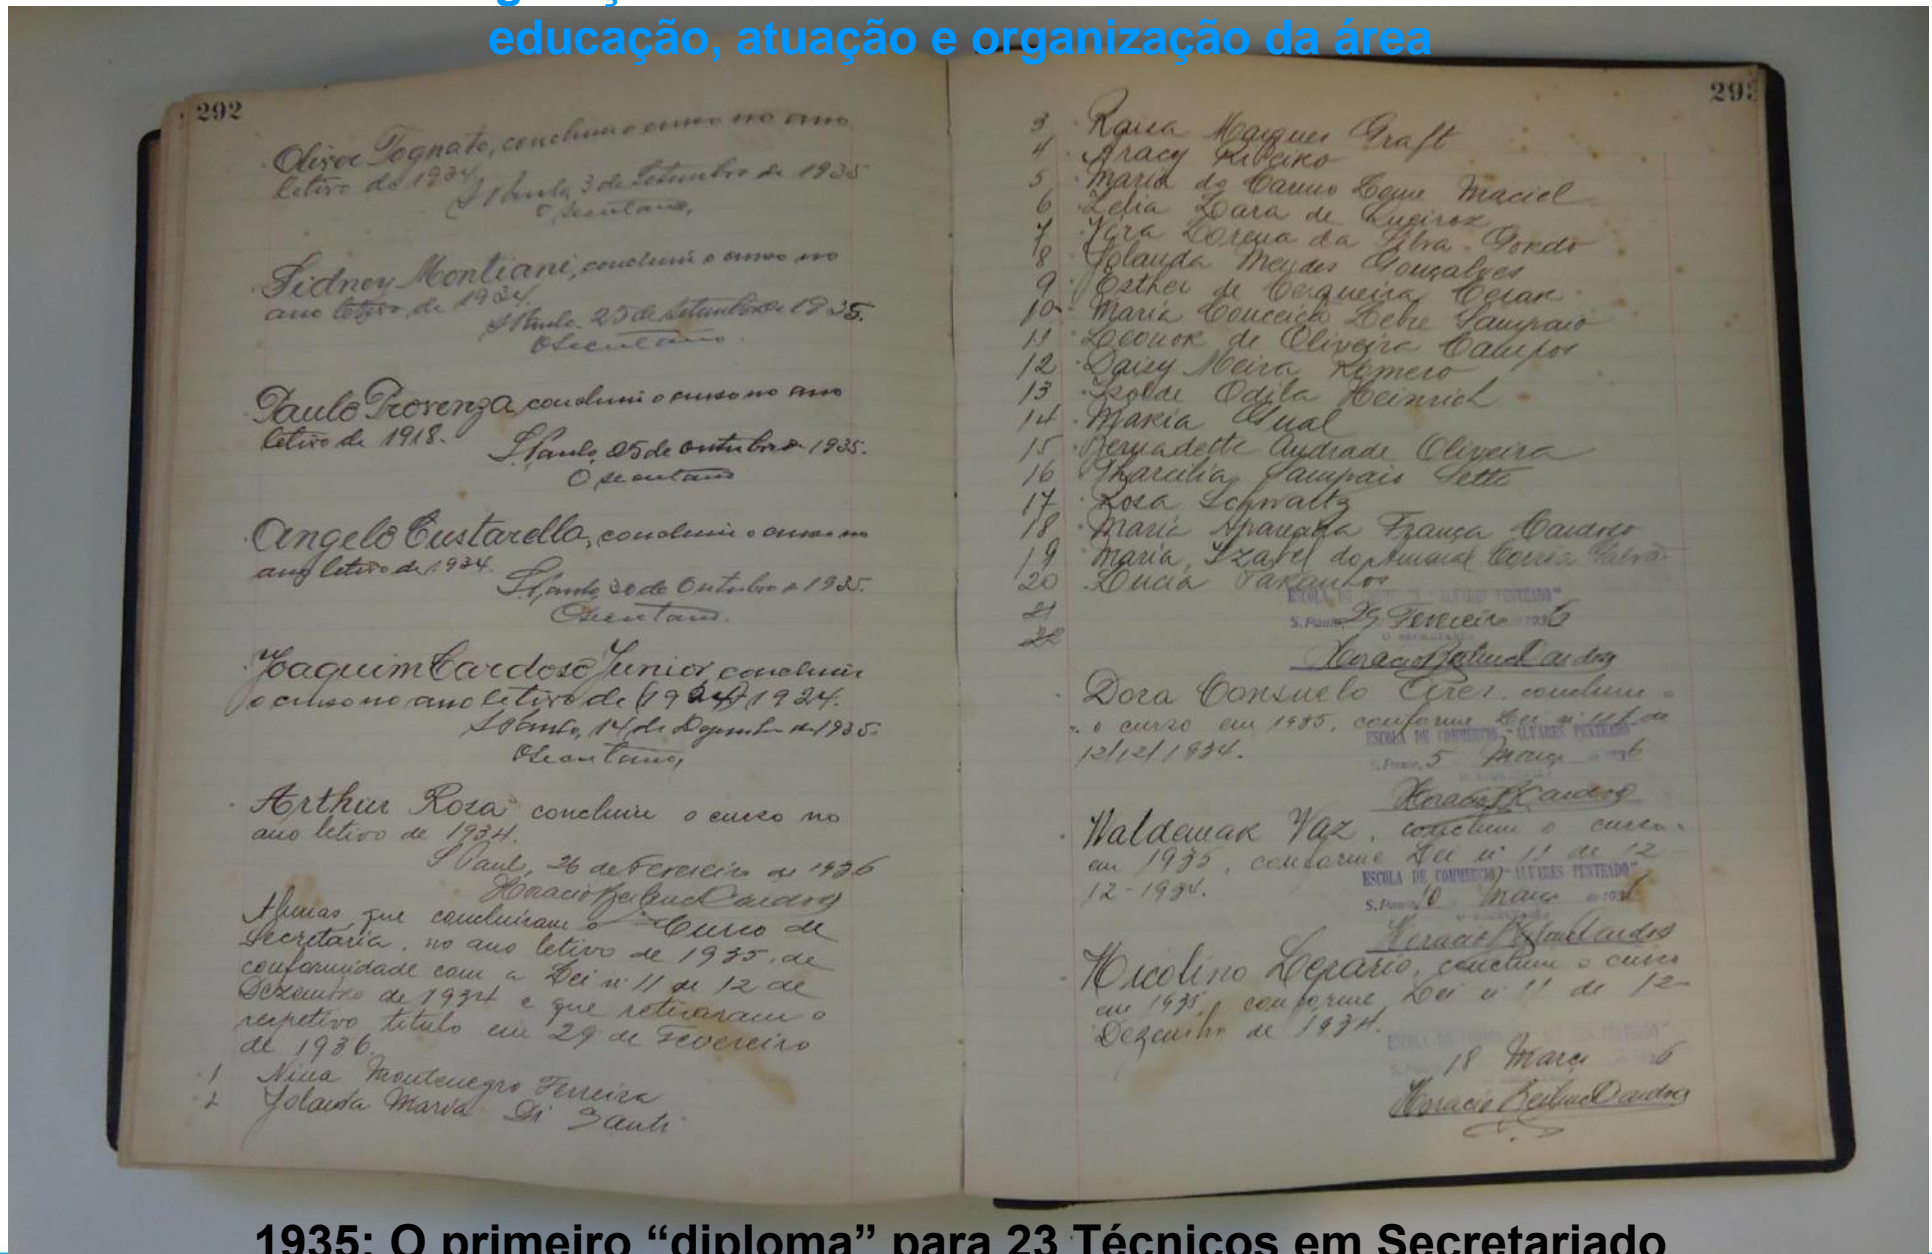 educação, atuação e organização da área
292
Olivor Tognato, concluiu o curso no ano
letivo de 1934.
S. Paulo, 3 de Setembro de 1935
O secretario,
Sidney Montiani, concluiu o curso no
ano letivo de 1934.
S. Paulo, 25 de Setembro de 1935.
O secretario.
Paulo Provenza, concluiu o curso no ano
letivo de 1918.
S. Paulo, 05 de outubro de 1935.
O secretario
Angelo Custarella, concluiu o curso no
ano letivo de 1934.
S. Paulo, 30 de Outubro de 1935.
O secretario.
Joaquim Cardoso Junior, concluiu
o curso no ano letivo de (1924) 1924.
S. Paulo, 14 de Dezembro de 1935.
O secretario,
Arthur Rosa concluiu o curso no
ano letivo de 1934.
S. Paulo, 26 de Fevereiro de 1936
Horacio Cardoso
Alunas que concluiram o Curso de
Secretaria, no ano letivo de 1935, de
conformidade com a Lei nº 11 de 12 de
Dezembro de 1934 e que retiraram o
respetivo titulo em 29 de Fevereiro
de 1936.
1 Nina Montenegro Ferreira
2 Jolanda Maria Di Santi
3 Marques Graft
4 Aracy Ribeiro
5 Maria do Carmo Leme Maciel
6 Zelia Lara de Queiroz
7 Vera Lorena da Silva Gordo
8 Jolanda Mendes Gonçalves
9 Esther de Cerqueira Cesar
10 Maria Conceição Leite Sampaio
11 Leonor de Oliveira Campos
12 Daisy Meira Romero
13 Isolde Odila Heinrich
14 Maria Gual
15 Bernadette Andrade Oliveira
16 Tharcilia Sampaio Sette
17 Rosa Schwartz
18 Maria Aparecida França Cardoso
19 Maria Izabel do Amaral Correia
20 Lucia
21
22
ESCOLA DE COMMERCIO "ALVARES PENTEADO"
S. Paulo, 29 Fevereiro de 1936
O SECRETARIO
Horacio Cardoso
Dora Consuelo, concluiu
o curso em 1935, conforme Lei nº 11 de
12/12/1934.
ESCOLA DE COMMERCIO "ALVARES PENTEADO"
S. Paulo, 5 Março de 1936
Horacio Cardoso
Waldemar Vaz, concluiu o curso
em 1935, conforme Lei nº 11 de 12-
12-1934.
ESCOLA DE COMMERCIO "ALVARES PENTEADO"
S. Paulo, 10 Março de 1936
Horacio Cardoso
Nicolino Leprario, concluiu o curso
em 1935, conforme Lei nº 11 de 12-
Dezembro de 1934.
ESCOLA DE COMMERCIO "ALVARES PENTEADO"
18 Março 6
Horacio Cardoso
1935: O primeiro “diploma” para 23 Técnicos em Secretariado